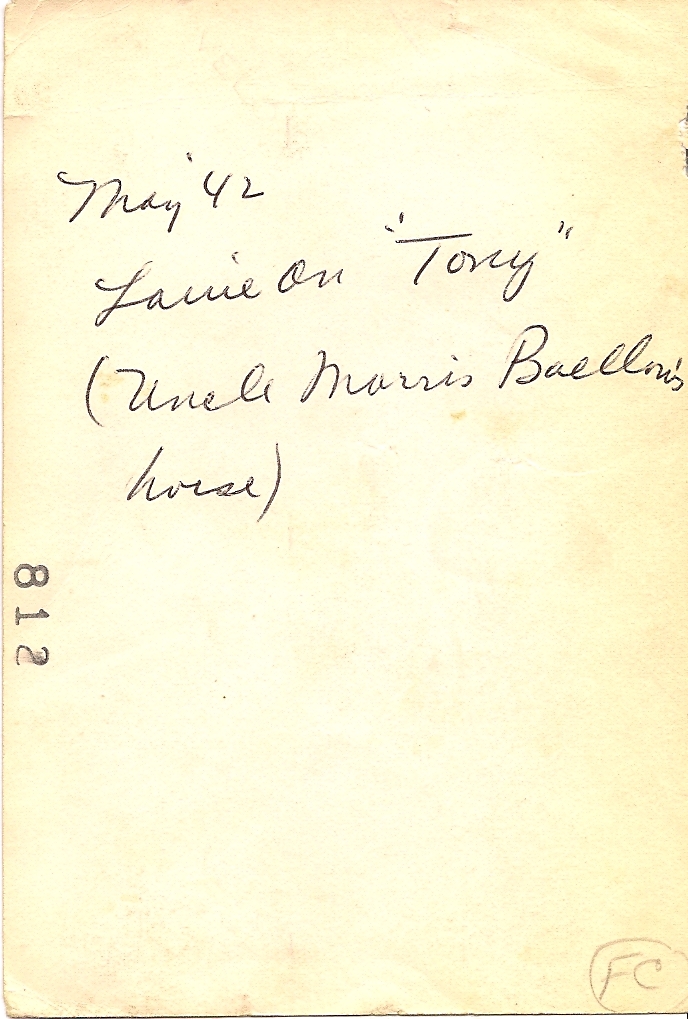 May '42
on "Tony"
(Uncle Morris
horse)
812
FC